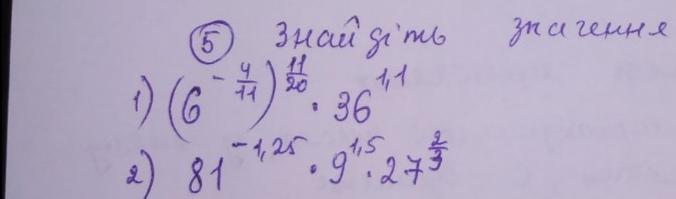 5 Знайдіть значення
1) (6^{-\frac{4}{11}})^{\frac{11}{20}} · 36^{1,1}
2) 81^{-1,25} · 9^{1,5} · 27^{\frac{2}{3}}